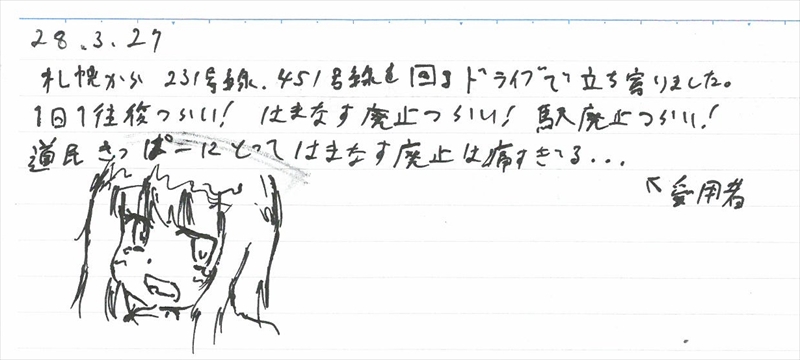 28.3.27
札幌から 231号線、451号線を回るドライブで立ち寄りました。
1日1往復つらい! はまなす廃止つらい! 駅廃止つらい!
道民きっぱーにとってはまなす廃止は痛すぎる...
↖愛用者